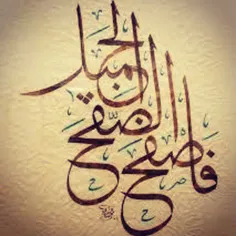 فَاصْفَحِ
الصَّفْحَ
الْجَمِيلَ